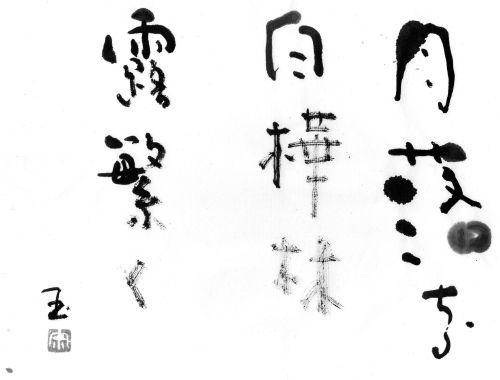 月
白樺林
露繁く
玉